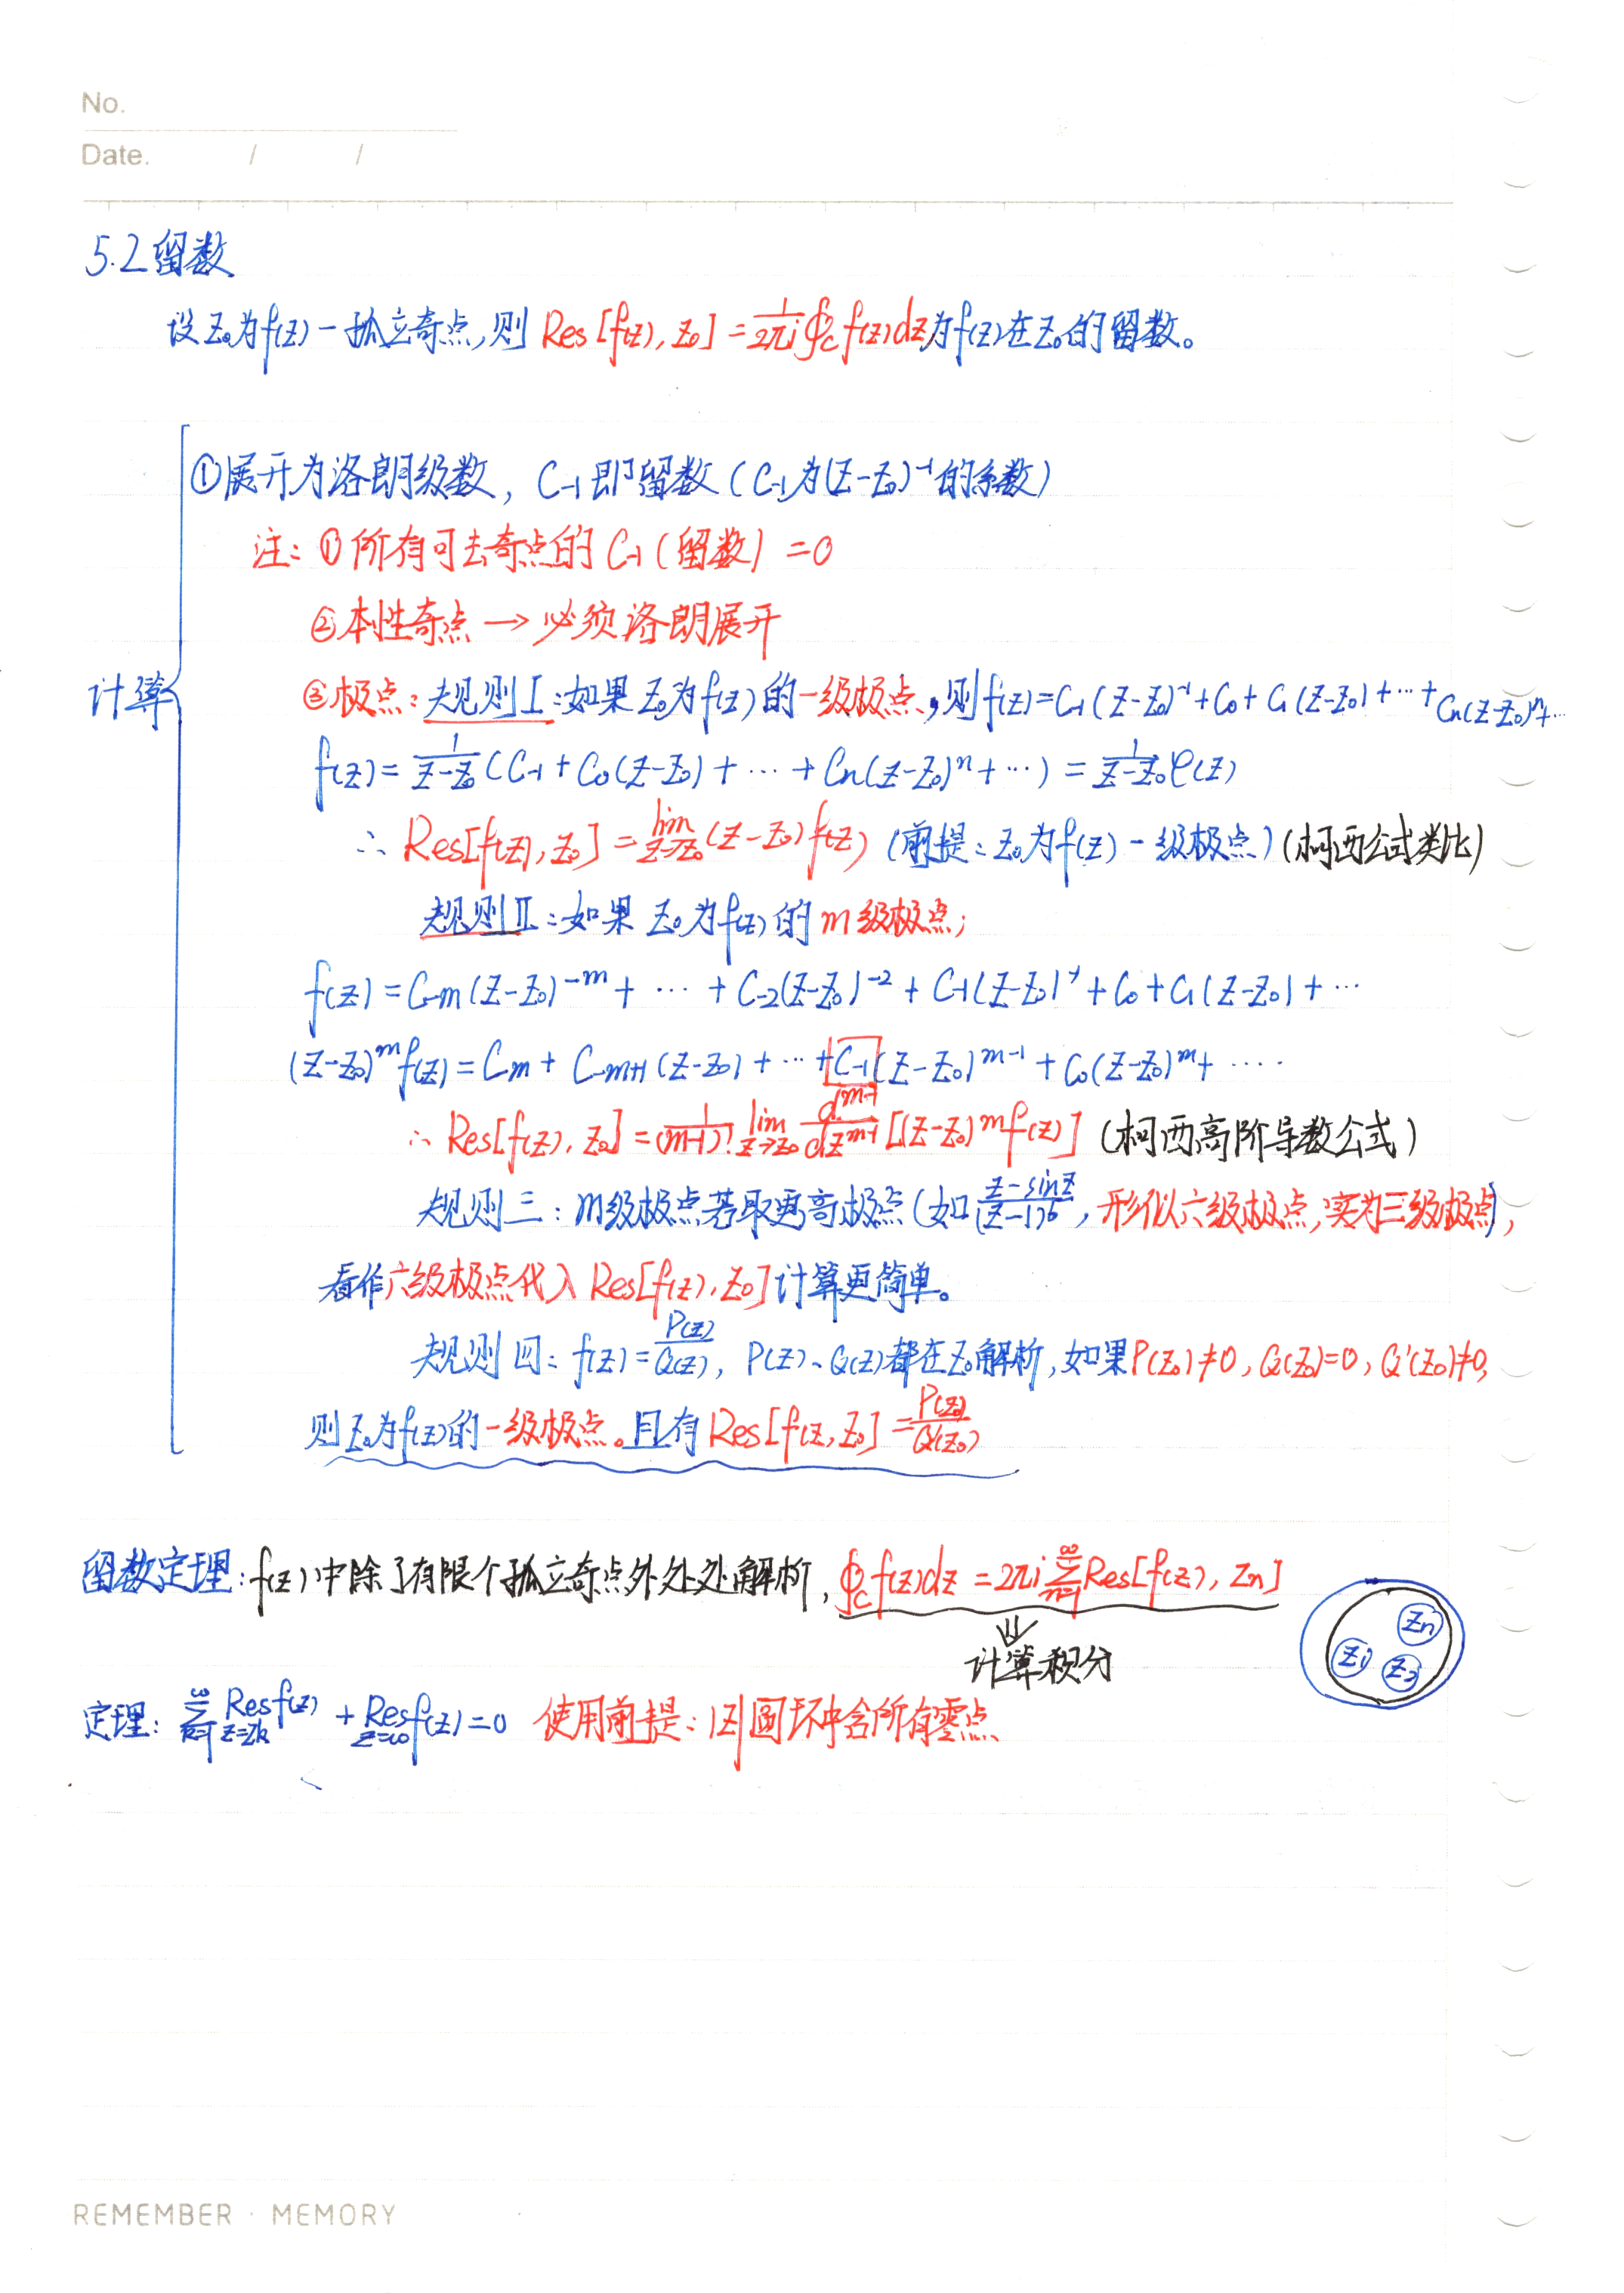 No.
Date. / /
5.2留数
设Z₀为f(z)一孤立奇点,则 Res[f(z), z₀] = 1/2πi ∮c f(z)dz为f(z)在Z₀的留数。
①展开为洛朗级数, C₋₁即留数(C₋₁为(Z-Z₀)⁻¹的系数)
注: ①所有可去奇点的C₋₁(留数) =0
②本性奇点→必须洛朗展开
计算
③极点: 规则I:如果Z₀为f(z)的一级极点,则f(z)=C₋₁(Z-Z₀)⁻¹+C₀+C₁(Z-Z₀)+…+Cn(Z-Z₀)ⁿ+…
f(z)=1/(Z-Z₀) (C₋₁+C₀(Z-Z₀)+…+Cn(Z-Z₀)ⁿ+…) = 1/(Z-Z₀) φ(Z)
∴ Res[f(z), z₀] = lim Z→Z₀ (Z-Z₀)f(z) (前提:Z₀为f(z)一级极点)(柯西公式类比)
规则II:如果Z₀为f(z)的m级极点;
f(z)=C₋m(Z-Z₀)⁻ᵐ+…+C₋₂(Z-Z₀)⁻²+C₋₁(Z-Z₀)⁻¹+C₀+C₁(Z-Z₀)+…
(Z-Z₀)ᵐf(z)=C₋m+C₋m+1(Z-Z₀)+…+C₋₁(Z-Z₀)ᵐ⁻¹+C₀(Z-Z₀)ᵐ+….
∴ Res[f(z), z₀]=1/(m-1)! lim Z→Z₀ dᵐ⁻¹/dzᵐ⁻¹ [(Z-Z₀)ᵐf(z)] (柯西高阶导数公式)
规则三: m级极点若取更高极点(如 (z-sinz)/(z-1)⁶, 形似六级极点,实为三级极点),
看作六级极点代入Res[f(z), z₀]计算更简单。
规则四: f(z)=P(z)/Q(z), P(z)、Q(z)都在Z₀解析,如果P(Z₀)≠0, Q(Z₀)=0, Q'(Z₀)≠0,
则Z₀为f(z)的一级极点。且有Res[f(z, Z₀]=P(z₀)/Q'(z₀)
留数定理:f(z)中除了有限个孤立奇点外处处解析, ∮c f(z)dz = 2πi ∞∑n=1 Res[f(z), Zn]
⇓
计算积分
Zn
Z₁
Z₂
定理: ∞∑k=1 Res z=zk f(z) + Res z=∞ f(z)=0 使用前提: |Z|圆环中含所有零点
REMEMBER · MEMORY